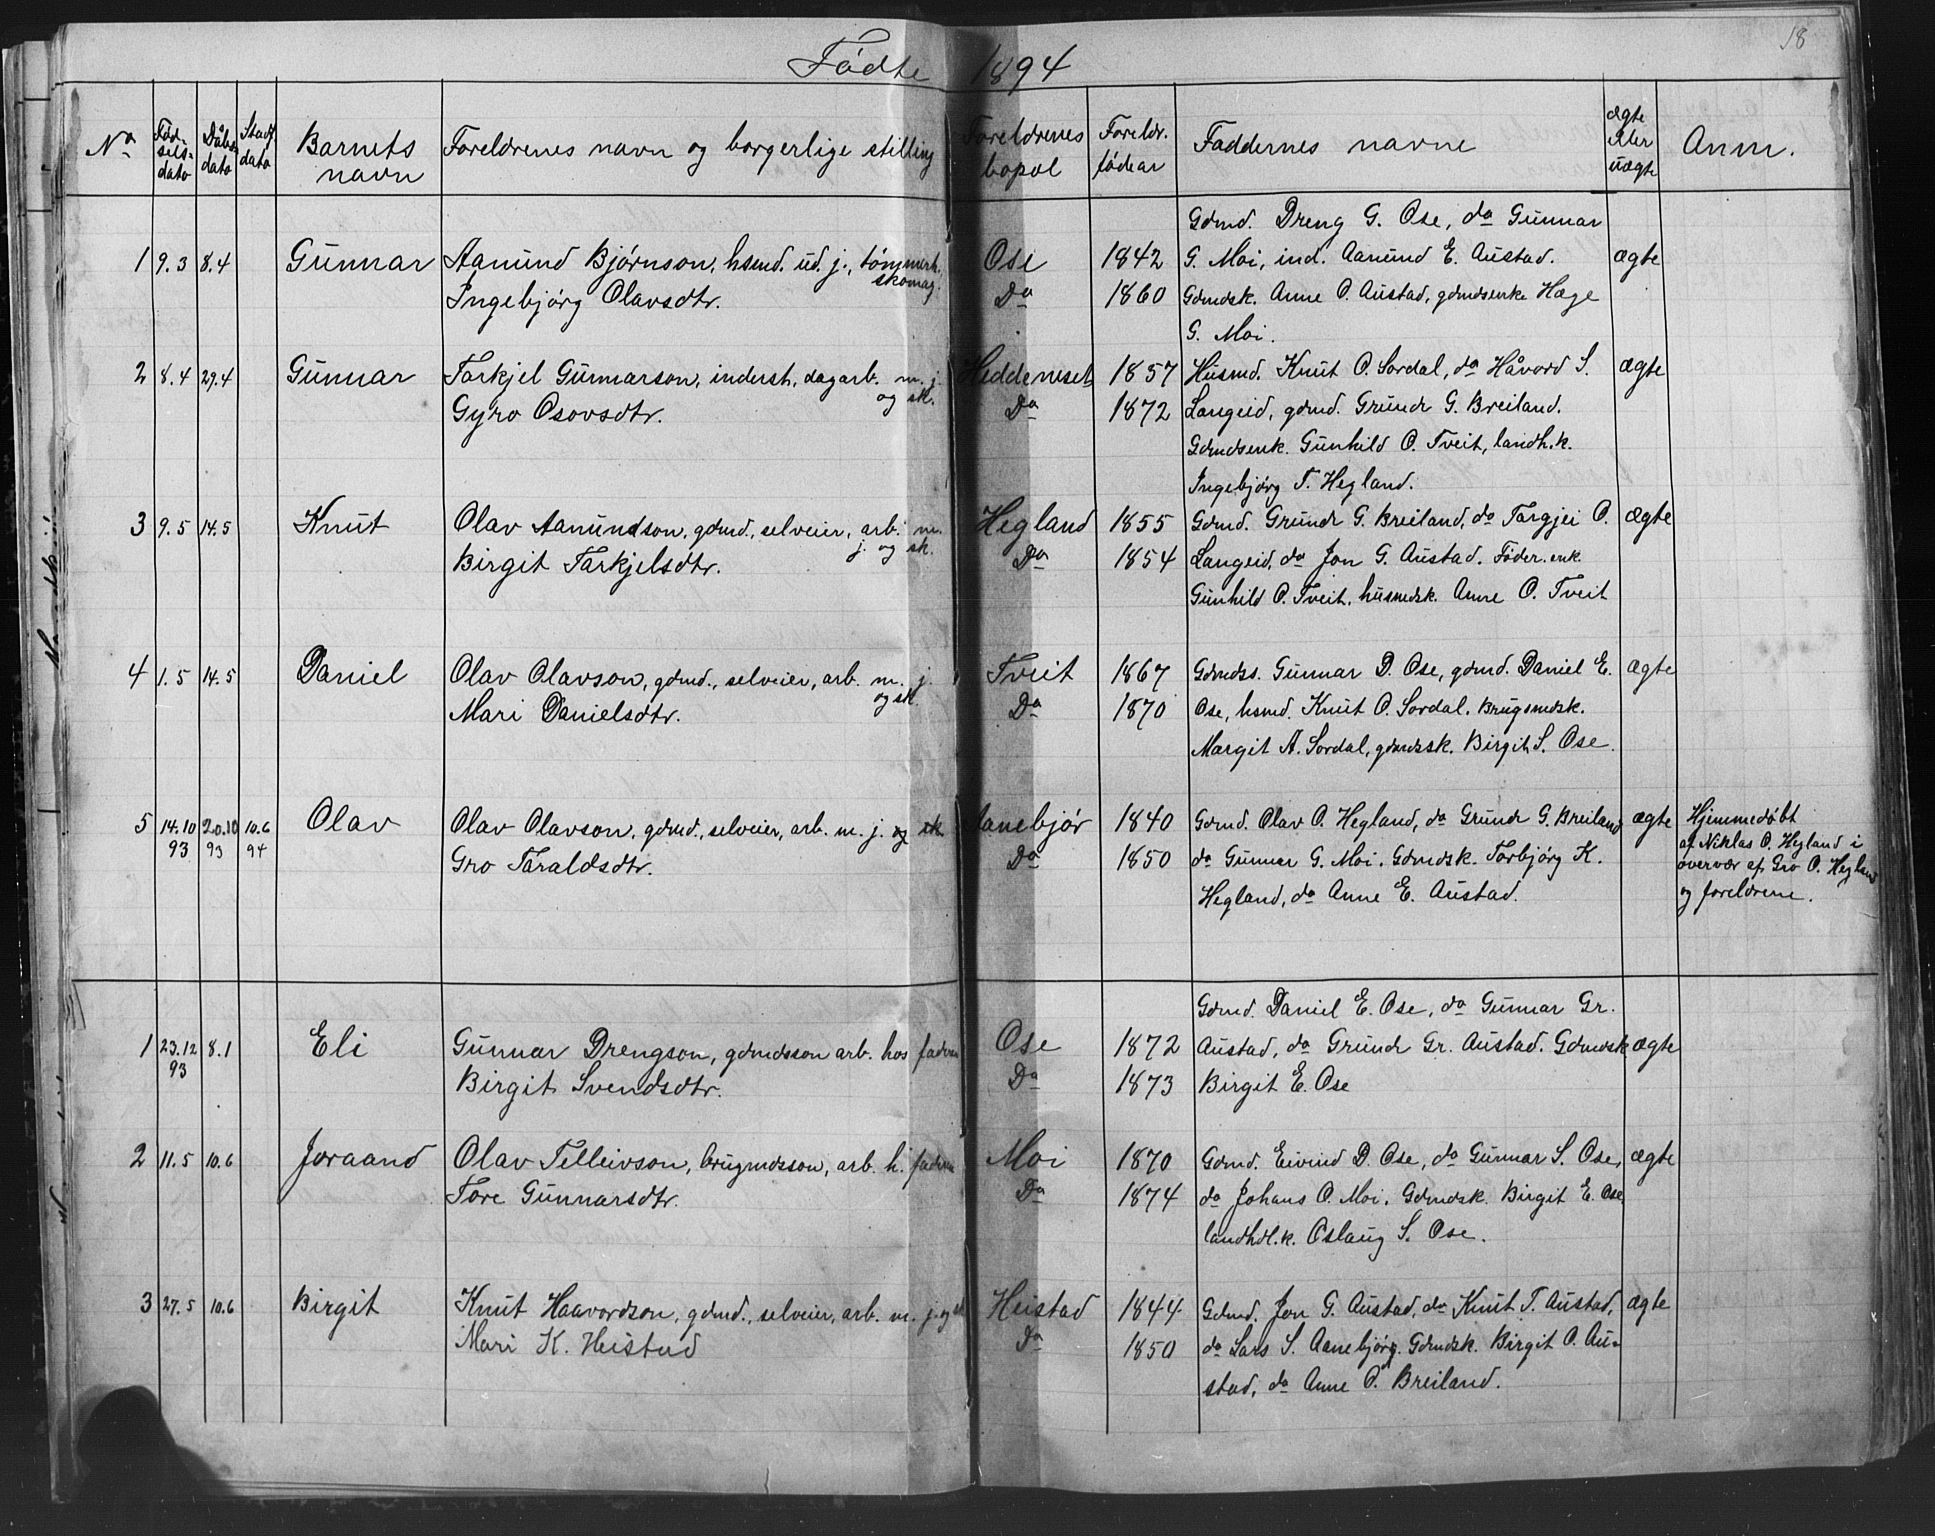 18
Fødte 1894
No Fødselsdato Dåbsdato Stadf dato Barnets navn Foreldrenes navn og borgerlige stilling Foreldrenes bopæl Foreldr. fødeår Faddernes navne ægte eller uægte Anm.
Gdmd. Dreng G. Ose, do Gunnar
1 9.3 8.4 Gunnar Aanund Bjørnson, hsmd. ud. j., tømmerh. Ose 1842 G. Moi, ind. Aanund E. Austad. ægte
skomag.
Ingebjørg Olavsdtr. Do 1860 Gdmdsk. Anne O. Austad, gdmdsenke Hæge
G. Moi.
2 8.4 29.4 Gunnar Tarkjel Gunnarson, inderst, dagarb. m. j. Heddeneset 1857 Husmd. Knut O. Sordal, do Håvord S. ægte
og sk.
Gyro Osovsdtr. Do 1872 Langeid, gdmd. Grundr G. Breiland.
Gdmdsenk. Gunhild O. Tveit, landh.k.
Ingebjørg T. Hegland.
3 9.5 14.5 Knut Olav Aanundson, gdmd., selveier, arb. m. Hegland 1855 Gdmd. Grundr G. Breiland, do Targjei O. ægte
j. og sk.
Birgit Tarkjelsdtr. Do 1854 Langeid, do Jon G. Austad. Føder. enk.
Gunhild O. Tveit, husmdsk. Anne O. Tveit
4 1.5 14.5 Daniel Olav Olavson, gdmd., selveier, arb. m. j. Tveit 1867 Gdmdss. Gunnar D. Ose, gdmd. Daniel E. ægte
og sk.
Mari Danielsdtr. Do 1870 Ose, hsmd. Knut O. Sordal. Brugsmdsk.
Margit A. Sordal, gdmdsk. Birgit S. Ose.
5 14.10 93 20.10 93 10.6 94 Olav Olav Olavson, gdmd., selveier, arb. m. j. og sk. Aanebjør 1840 Gdmd. Olav O. Hegland, do Grundr G. Breiland ægte Hjemmedøbt
af Niklas O. Hegland i
Gro Taraldsdtr. Do 1850 do Gunnar G. Moi. Gdmdsk. Torbjørg K. overvær af Gro O. Hegland
Hegland, do Anne E. Austad. og foreldrene.
Gdmd. Daniel E. Ose, do Gunnar Gr.
1 23.12 93 8.1 Eli Gunnar Drengson, gdmdsson arb. hos faderen Ose 1872 Austad, do Grundr Gr. Austad. Gdmdsk ægte
Birgit Svendsdtr. Do 1873 Birgit E. Ose
2 11.5 10.6 Joraand Olav Telleivson, brugmdsson, arb. h. faderen Moi 1870 Gdmd. Eivind D. Ose, do Gunnar S. Ose, ægte
Tore Gunnarsdtr. Do 1874 do Johans O. Moi. Gdmdsk. Birgit E. Ose
landhdl.k. Oslaug S. Ose.
3 27.5 10.6 Birgit Knut Haavordson, gdmd., selveier, arb. m. j. og sk Heistad 1844 Gdmd. Jon G. Austad, do Knut T. Austad, ægte
Mari K. Heistad Do 1850 do Lars S. Aanebjørg. Gdmdsk. Birgit O. Au-
stad, do Anne O. Breiland.